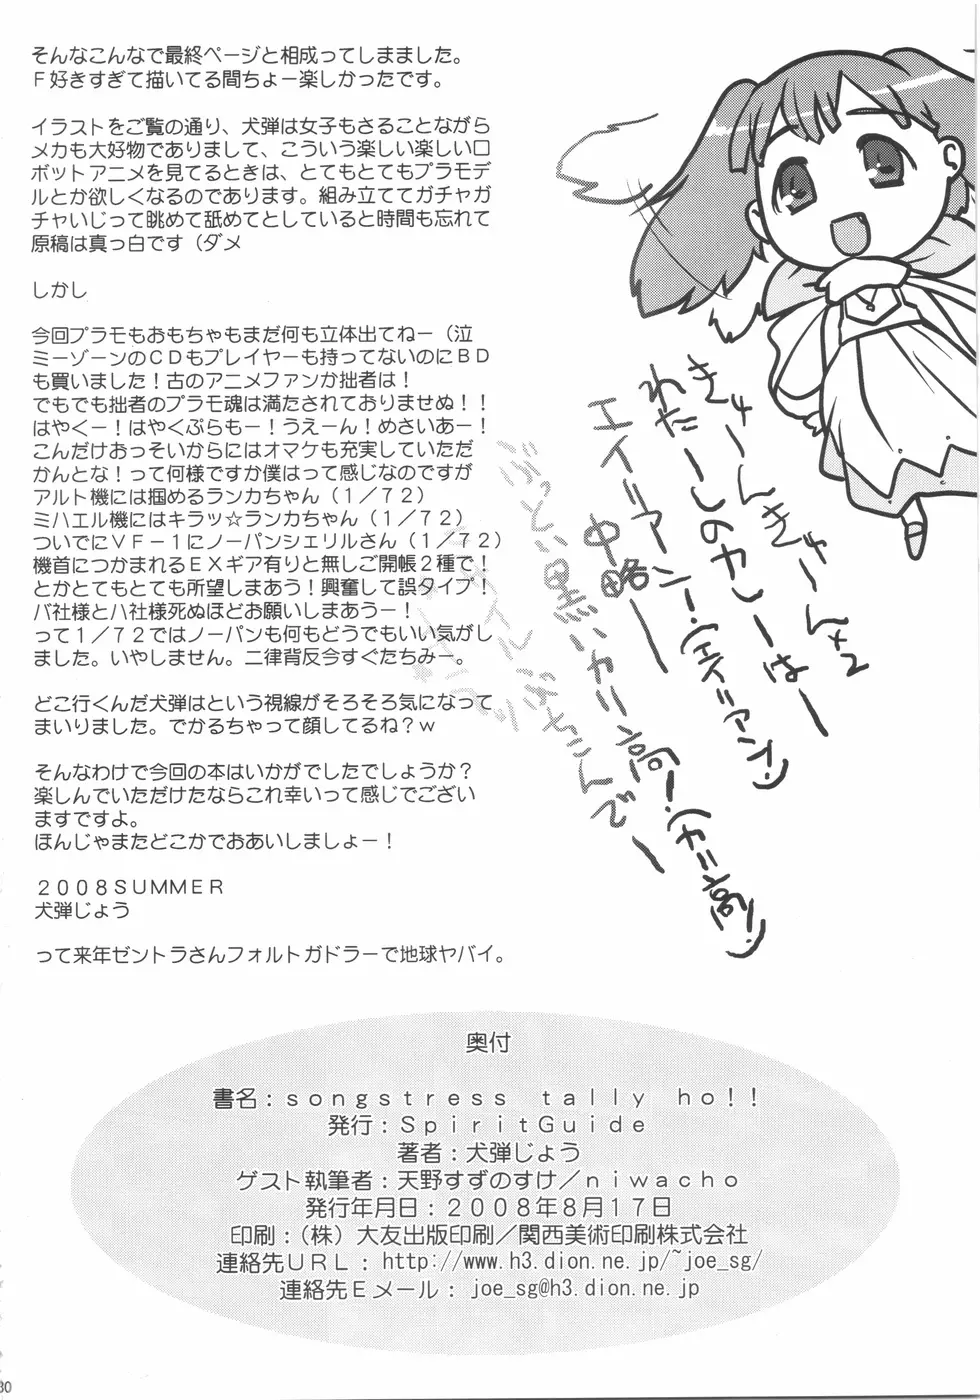 そんなこんなで最終ページと相成ってしまました。
F好きすぎて描いてる間ちょー楽しかったです。
イラストをご覧の通り、犬弾は女子もさることながら
メカも大好物でありまして、こういう楽しい楽しいロ
ボットアニメを見てるときは、とてもとてもプラモデ
ルとか欲しくなるのであります。組み立ててガチャガ
チャいじって眺めて舐めてとしていると時間も忘れて
原稿は真っ白です（ダメ
しかし
今回プラモもおもちゃもまだ何も立体出てねー（泣
ミーゾーンのCDもプレイヤーも持ってないのにBD
も買いました！古のアニメファンか拙者は！
でもでも拙者のプラモ魂は満たされておりませぬ！！
はやくー！はやくぷらもー！うえーん！めさいあー！
こんだけおっそいからにはオマケも充実していただ
かんとな！って何様ですか僕はって感じなのですが
アルト機には掴めるランカちゃん（1／72）
ミハエル機にはキラッ☆ランカちゃん（1／72）
ついでにVF-1にノーパンシェリルさん（1／72）
機首につかまれるEXギア有りと無しご開帳2種で！
とかとてもとても所望しまあう！興奮して誤タイプ！
バ社様とハ社様死ぬほどお願いしまあうー！
って1／72ではノーパンも何もどうでもいい気がし
ました。いやしません。二律背反今すぐたちみー。
どこ行くんだ犬弾はという視線がそろそろ気になって
まいりました。でかるちゃって顔してるね？w
そんなわけで今回の本はいかがでしたでしょうか？
楽しんでいただけたならこれ幸いって感じでござい
ますですよ。
ほんじゃまたどこかでおあいしましょー！
2008SUMMER
犬弾じょう
って来年ゼントラさんフォルトガドラーで地球ヤバイ。
きゅーんきゅーん×2
わたーしのカレーはー
エイリアン！（エイリアン）
中略ー
ぶっとい黒いカリ高！（カリ高）
ぶちこんでー
奥付
書名：songstress tally ho！！
発行：SpiritGuide
著者：犬弾じょう
ゲスト執筆者：天野すずのすけ／niwacho
発行年月日：2008年8月17日
印刷：（株）大友出版印刷／関西美術印刷株式会社
連絡先URL：http://www.h3.dion.ne.jp/~joe_sg/
連絡先Eメール：joe_sg@h3.dion.ne.jp
30